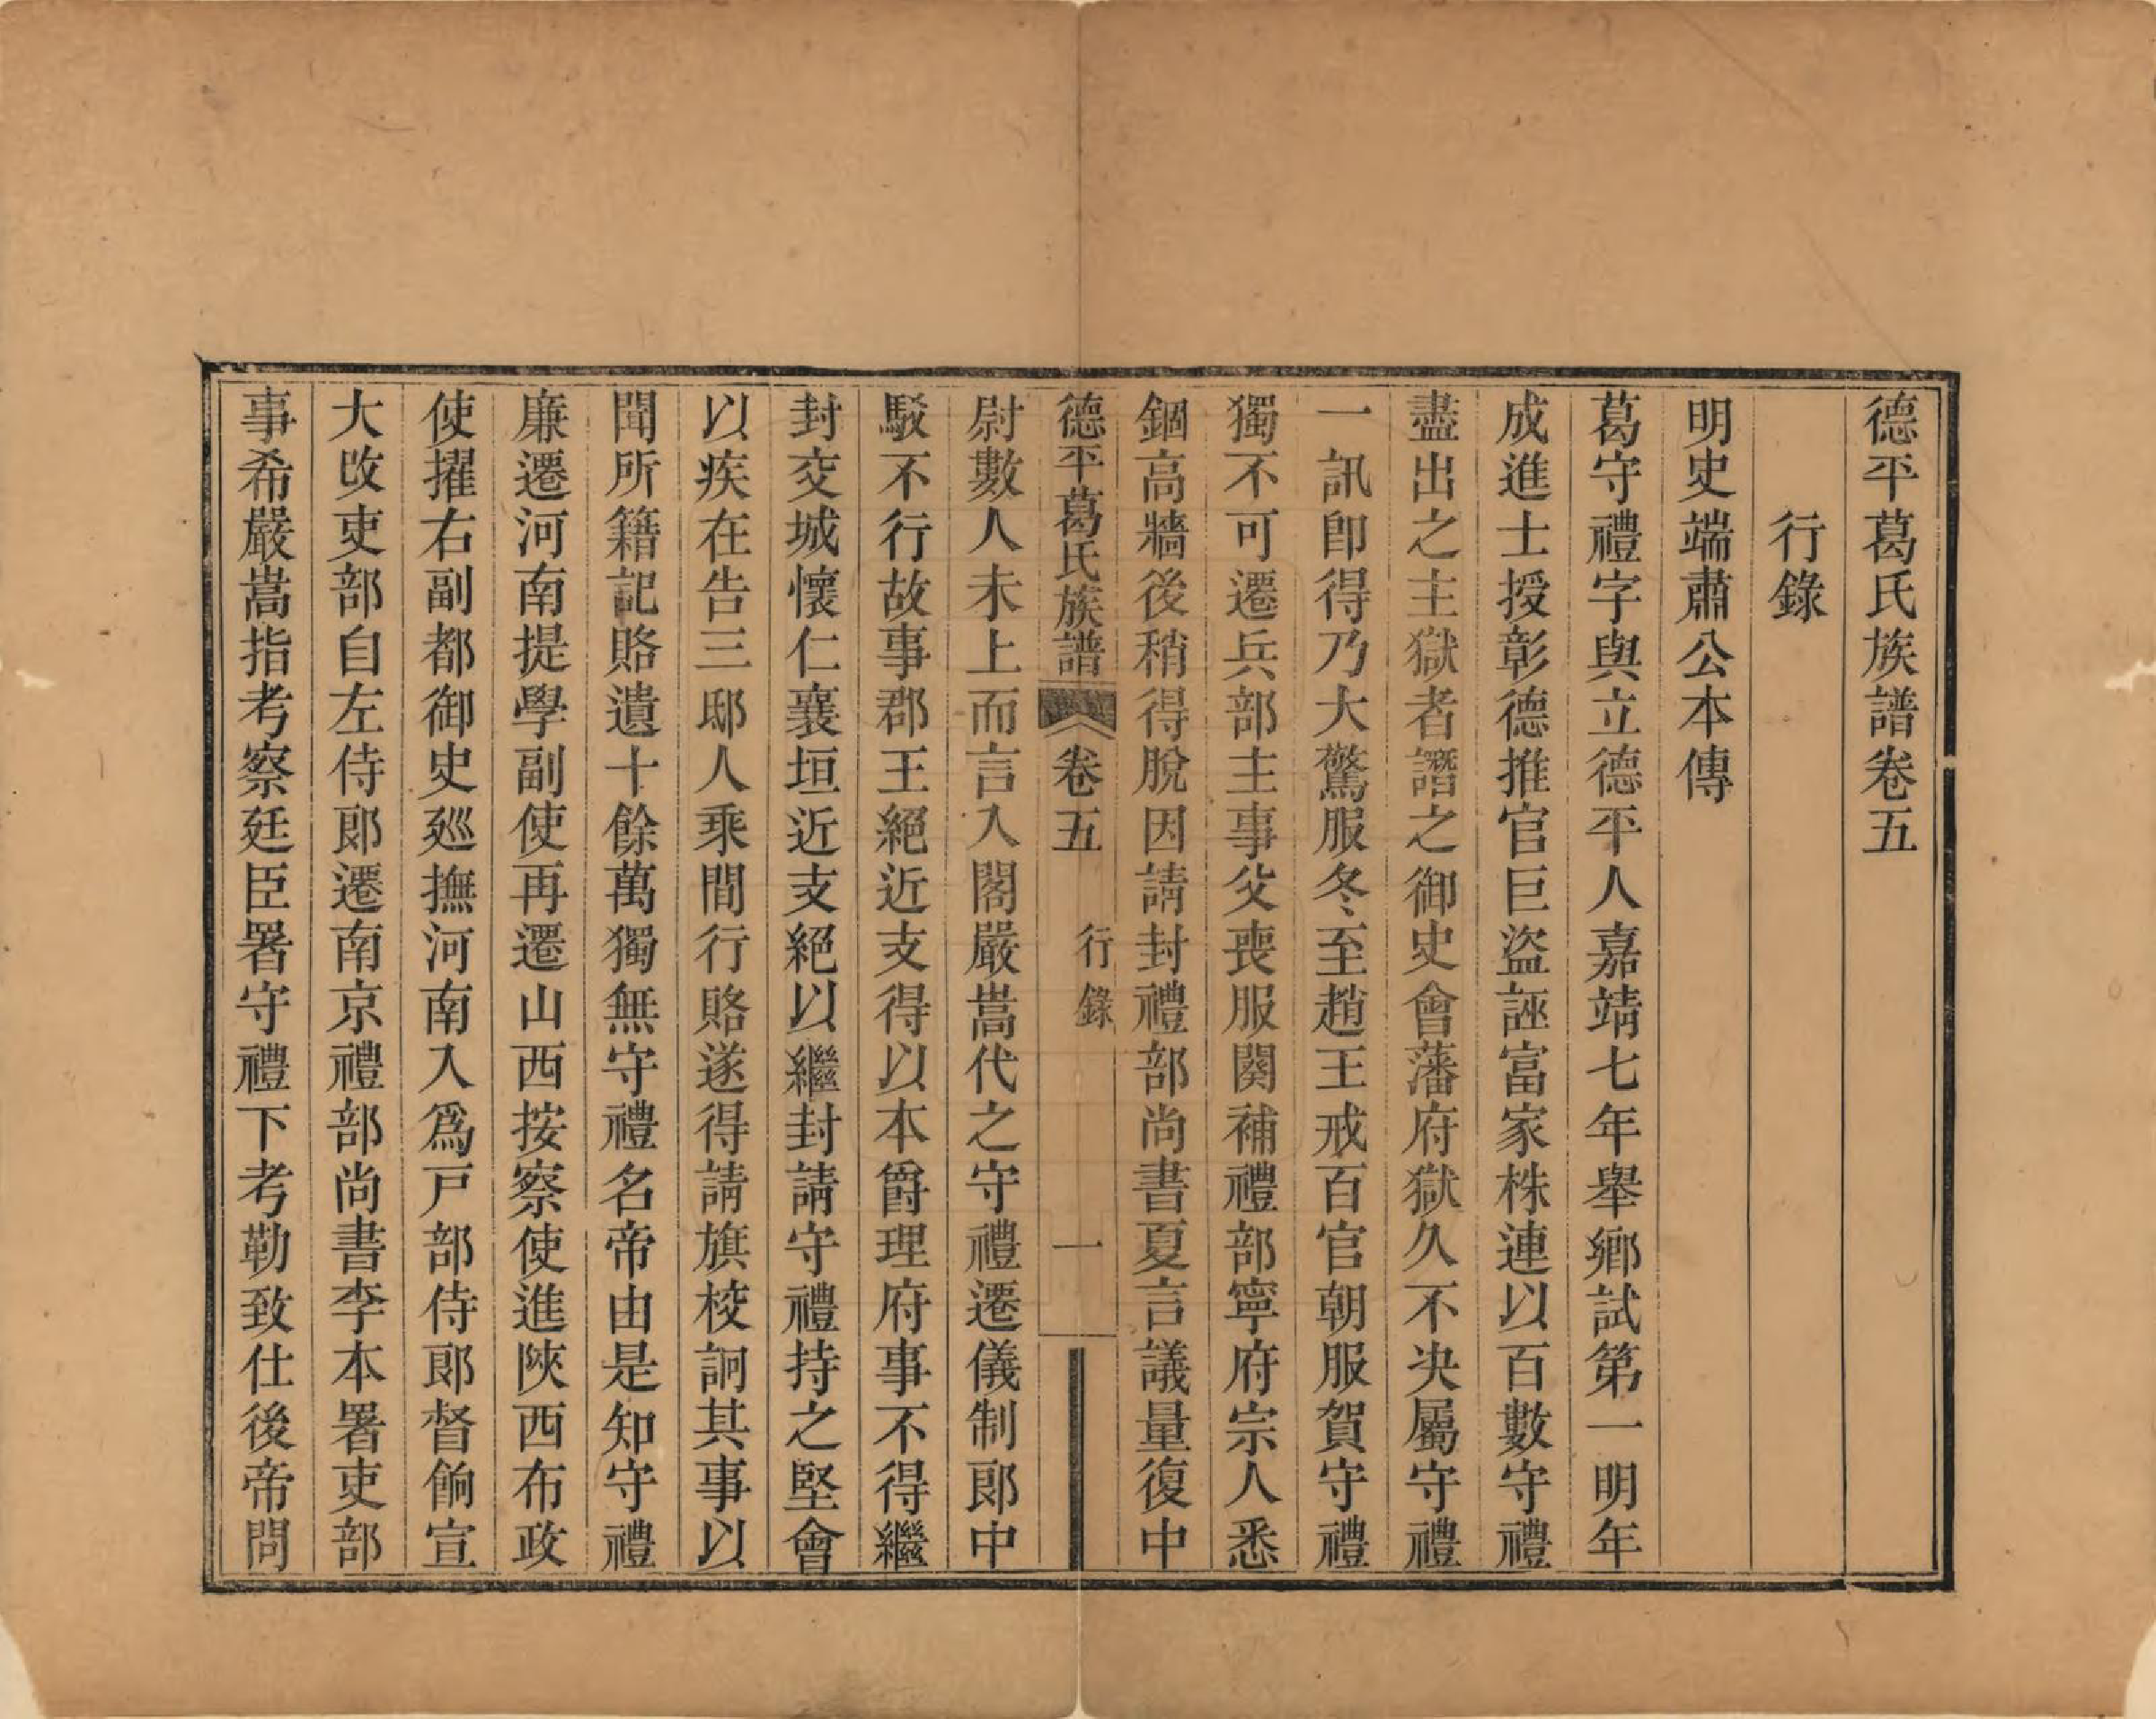 德平葛氏族譜卷五
行錄
明史端肅公本傳
葛守禮字與立德平人嘉靖七年舉鄉試第一明年
成進士授彰德推官巨盜誣富家株連以百數守禮
盡出之主獄者譖之御史會藩府獄久不决屬守禮
一訊卽得乃大驚服冬至趙王戒百官朝服賀守禮
獨不可遷兵部主事父喪服闋補禮部寧府宗人悉
錮高牆後稍得脫因請封禮部尚書夏言議量復中
德平葛氏族譜 卷五 行錄 一
尉數人未上而言入閣嚴嵩代之守禮遷儀制郞中
駁不行故事郡王絕近支得以本爵理府事不得繼
封交城懷仁襄垣近支絕以繼封請守禮持之堅會
以疾在告三邸人乘間行賂遂得請旗校詗其事以
聞所籍記賂遺十餘萬獨無守禮名帝由是知守禮
廉遷河南提學副使再遷山西按察使進陝西布政
使擢右副都御史廵撫河南入爲戸部侍郞督餉宣
大改吏部自左侍郞遷南京禮部尚書李本署吏部
事希嚴嵩指考察廷臣署守禮下考勒致仕後帝問